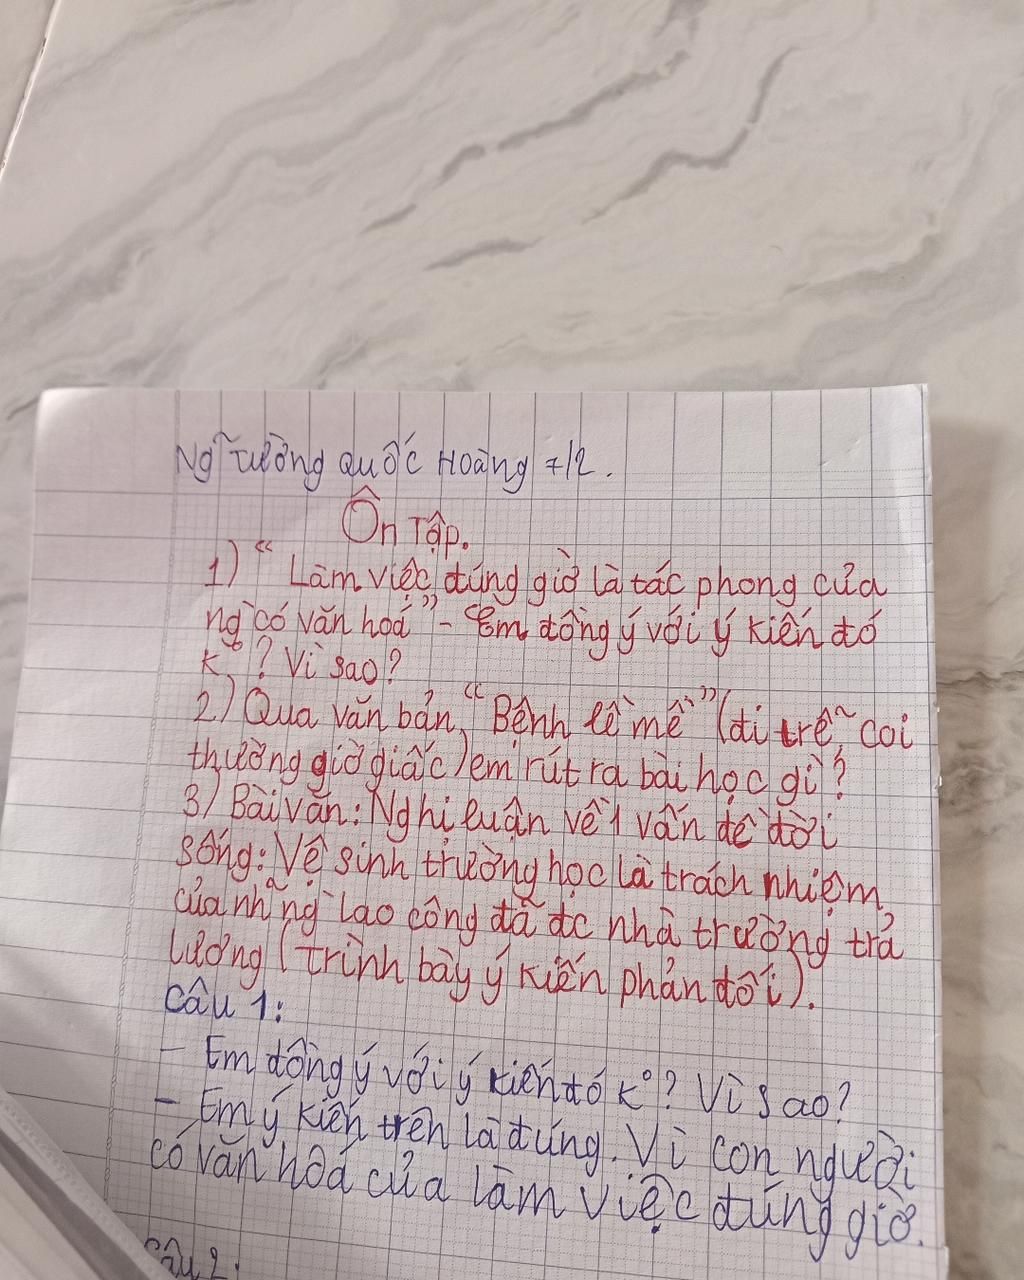 Ng̃ Tường Quốc Hoàng 7/2.
Ôn Tập.
1) “ Làm việc đúng giờ là tác phong của
ng̀ có văn hoá” - Em đồng ý với ý kiến đó
k° ? Vì sao?
2) Qua văn bản “Bệnh lề mề” (đi trễ, coi
thường giờ giấc) em rút ra bài học gì?
3) Bài văn: Nghị luận về 1 vấn đề đời
sống: Vệ sinh trường học là trách nhiệm
của nh̃ ng̀ lao công đã đc nhà trường trả
lương (trình bày ý kiến phản đối).
Câu 1:
- Em đồng ý với ý kiến đó k°? Vì sao?
- Em ý kiến trên là đúng. Vì con người
có văn hoá của làm việc đúng giờ.
Câu 2: